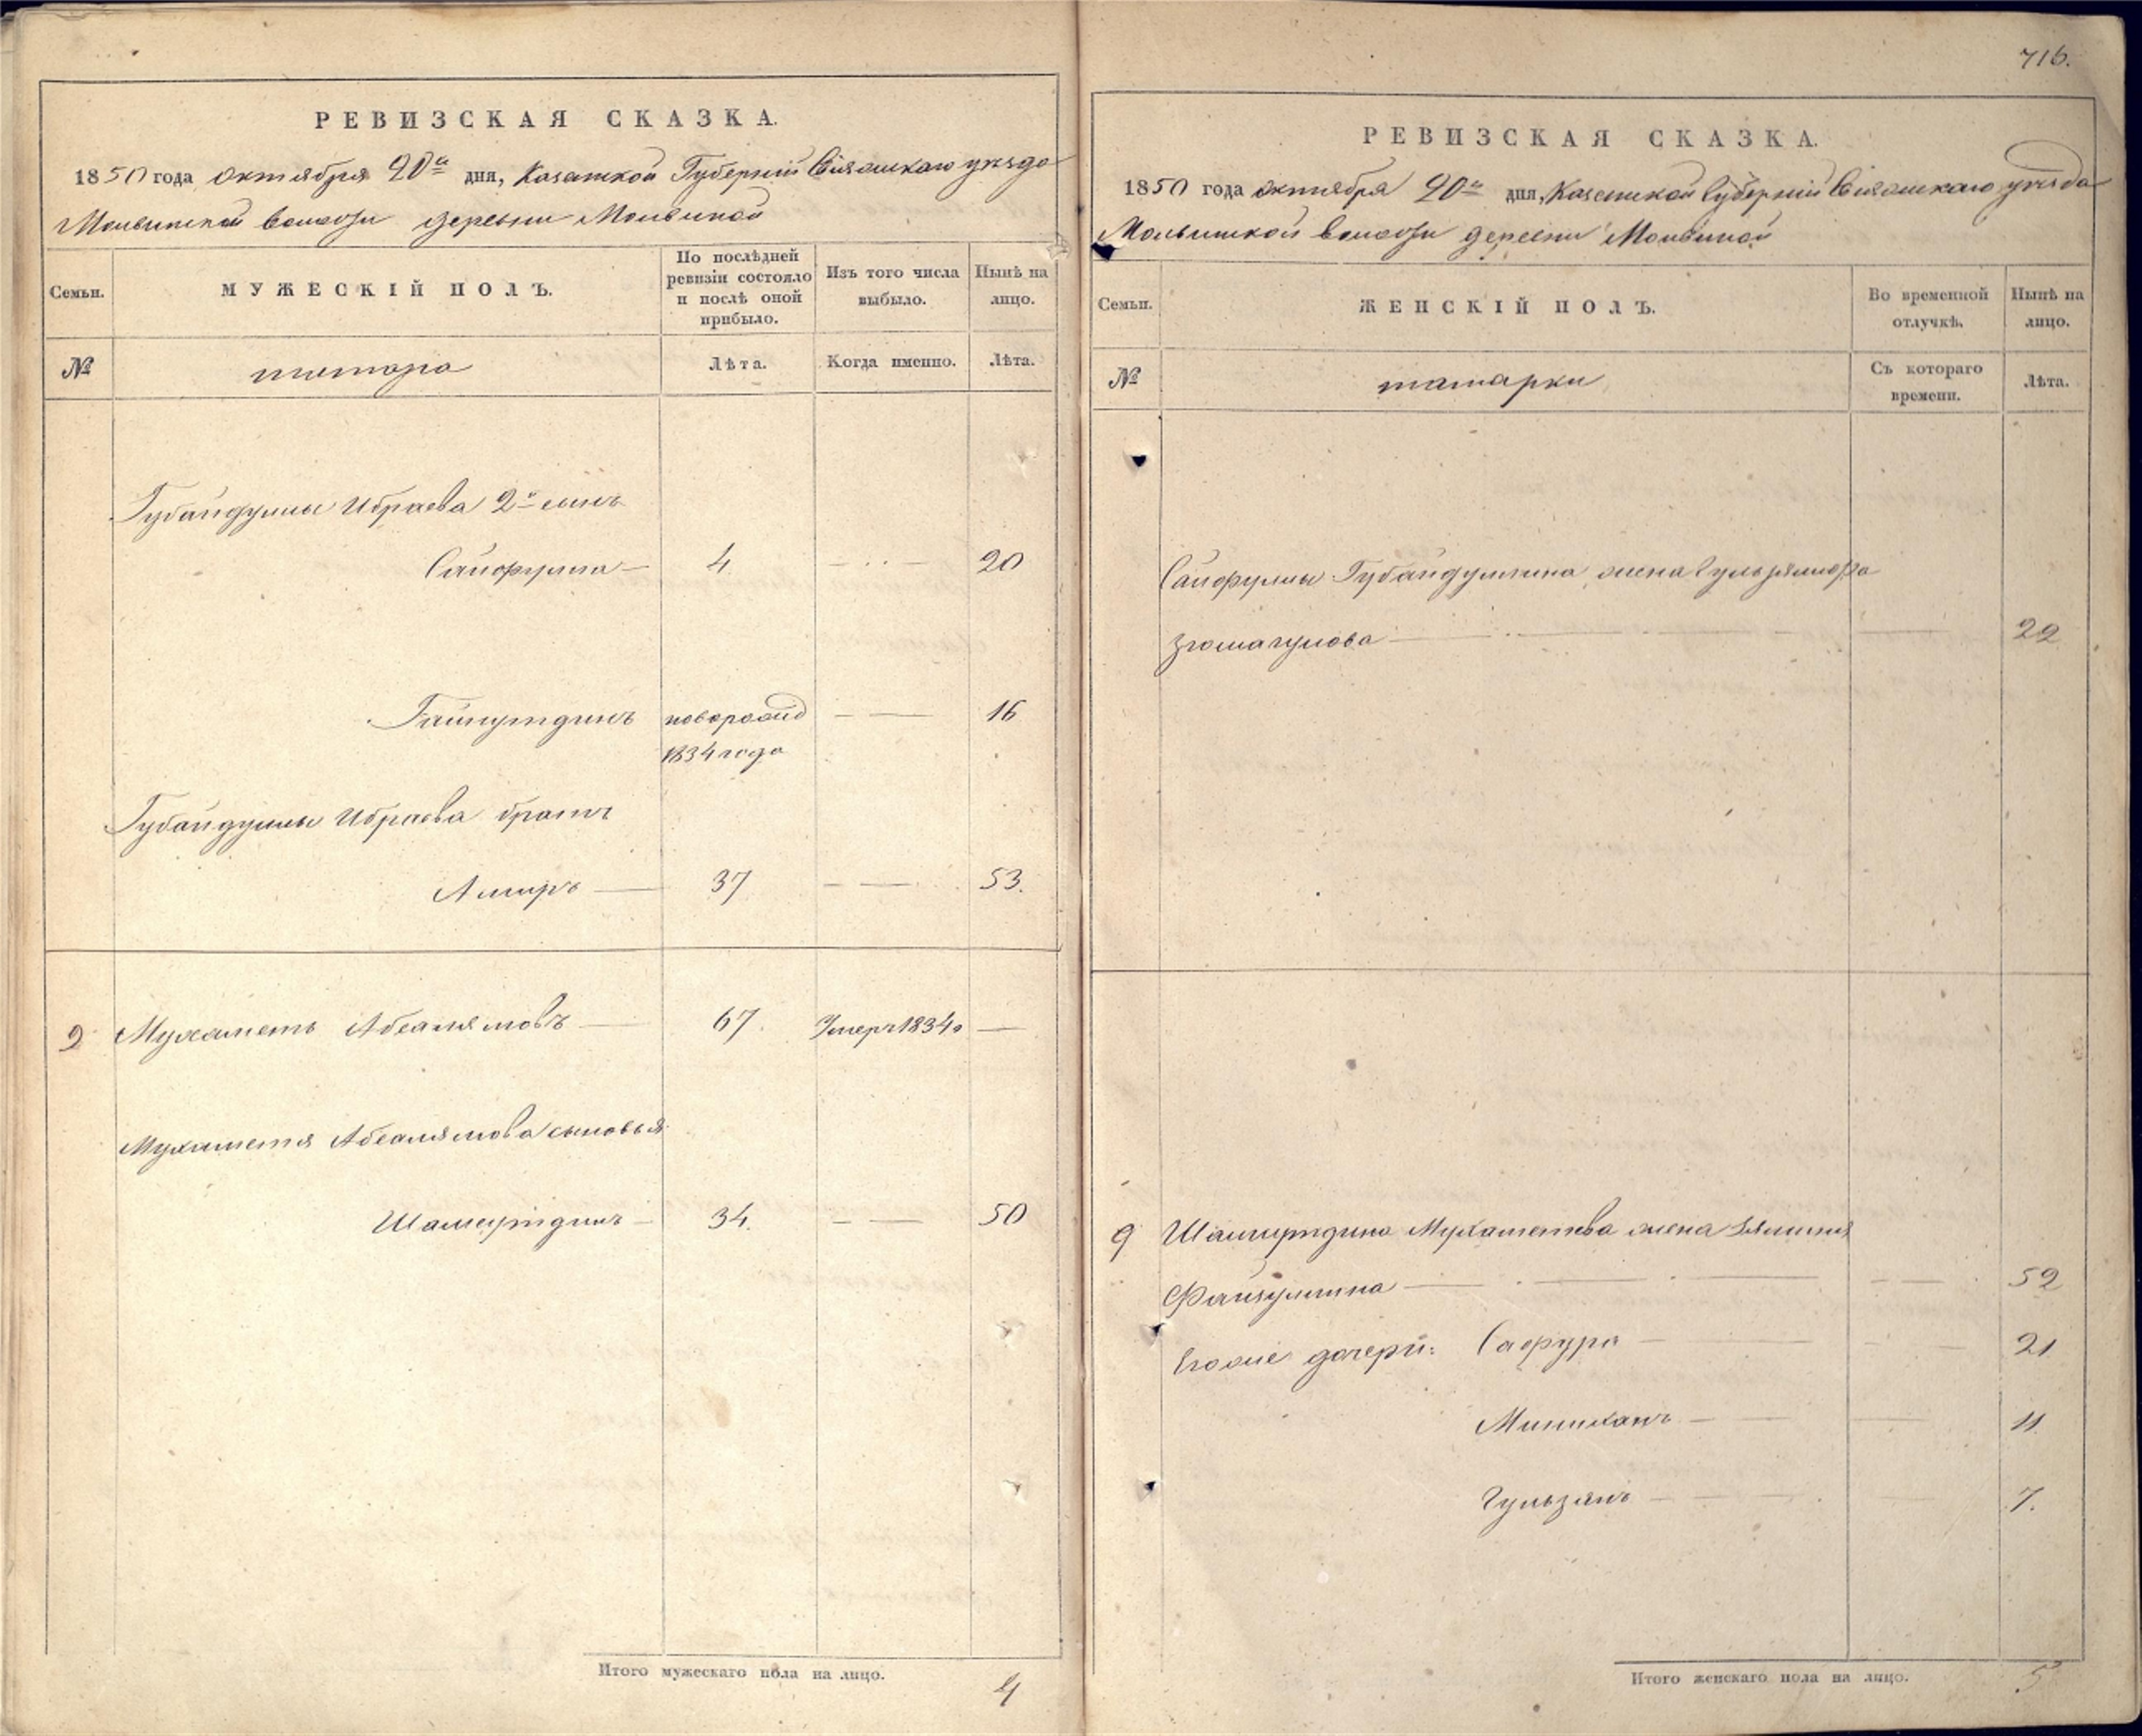 РЕВИЗСКАЯ СКАЗКА.
1850 года октября 20го дня, Казанской Губернии Свіяжскаго уѣзда
Молвинской волости деревни Молвиной
Семьи.
МУЖЕСКІЙ ПОЛЪ.
По послѣдней
ревизіи состояло
и послѣ оной
прибыло.
Изъ того числа
выбыло.
Нынѣ на
лицо.
№
татара
Лѣта.
Когда именно.
Лѣта.
Губайдуллы Ибраева 2й сынъ
Сайфулла 4 20
Гайнутдинъ новорожд 16
1834 года
Губайдуллы Ибраева братъ
Амиръ 37 53.
9 Мухаметь Абсалямовъ 67. Умеръ 1834го
Мухаметя Абсалямова сыновья
Шамсутдинъ 34. 50
Итого мужескаго пола на лицо. 4
716.
РЕВИЗСКАЯ СКАЗКА.
1850 года октября 20го дня, Казанской Губерніи Свіяжскаго уѣзда
Молвинской волости деревни Молвиной
Семьи.
ЖЕНСКІЙ ПОЛЪ.
Во временной
отлучкѣ.
Нынѣ на
лицо.
№
татарки
Съ котораго
времени.
Лѣта.
Сайфуллы Губайдуллина жена
Зюмагулова 22
9 Мухаметева жена
Файзуллина 52
Его же дочери: Сафура 21
Миниханъ 11
Гульзянъ 7.
Итого женскаго пола на лицо. 5